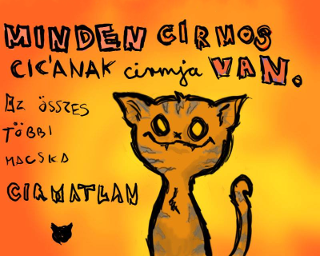 MINDEN CIRMOS
CICÁNAK cirmja VAN.
Az ÖSSZES
TÖBBI
MACSKA
CIRMATLAN